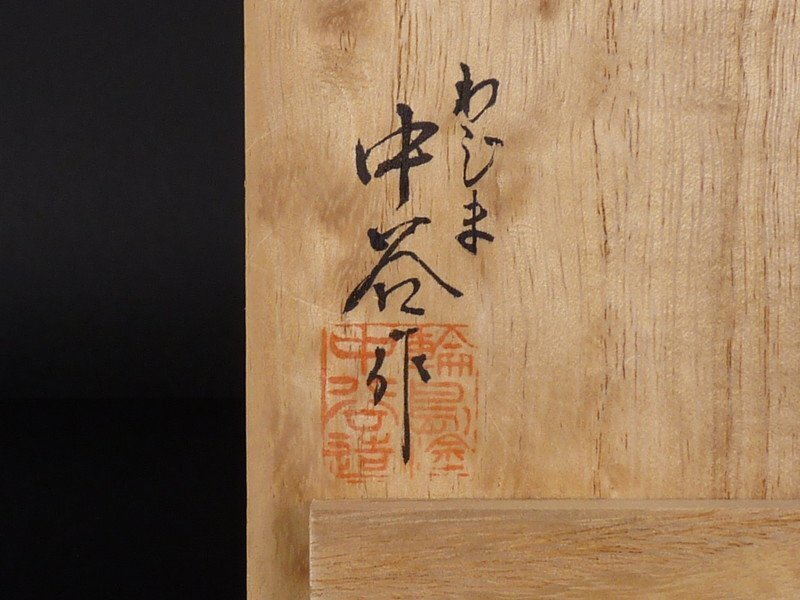 わじま
中谷作
輪島塗
中谷造